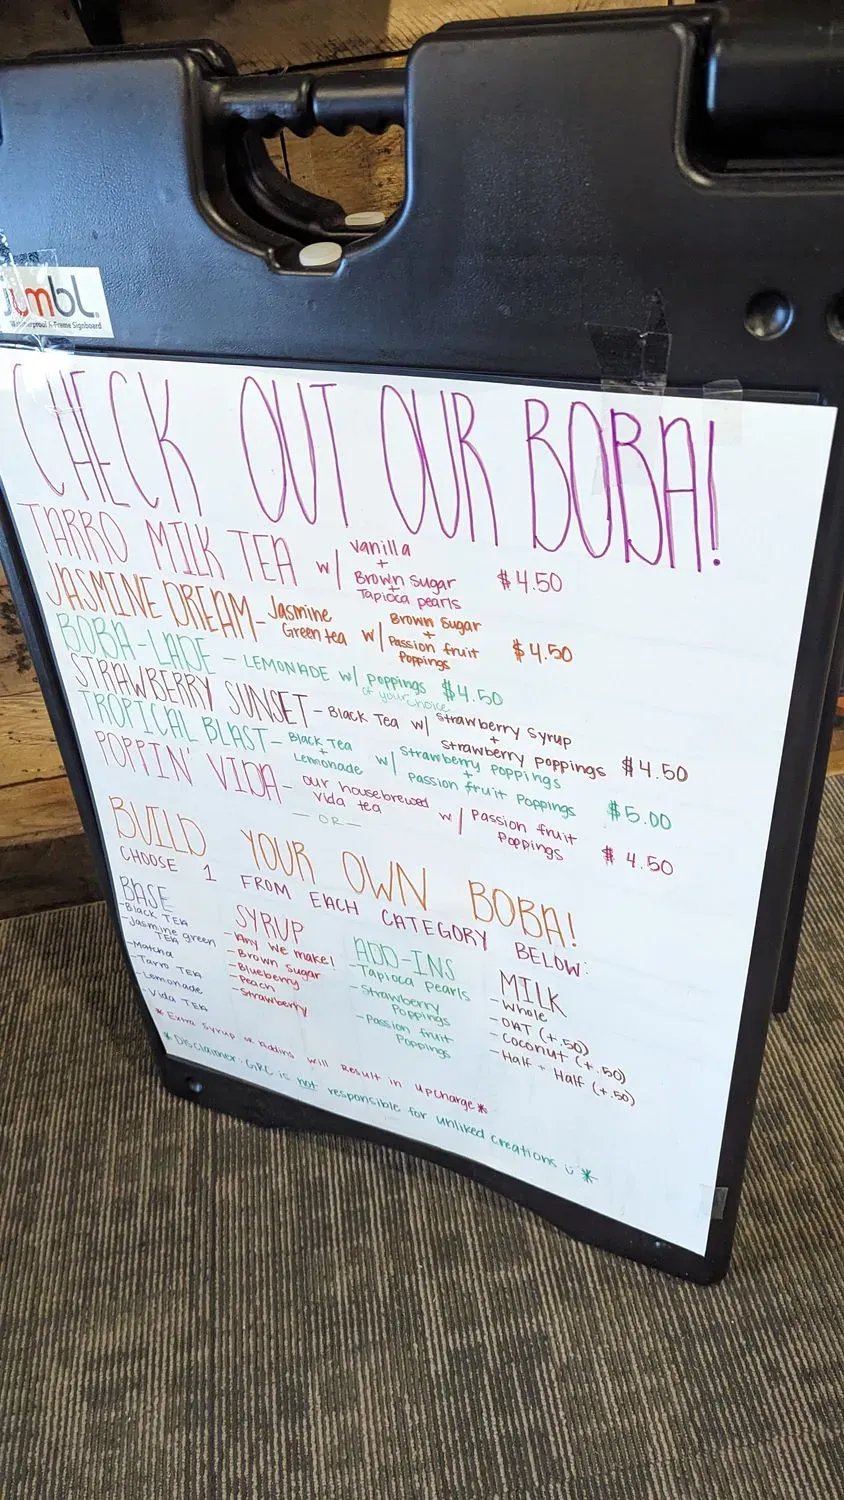 jumbl.
Weatherproof A-Frame Signboard
CHECK OUT OUR BOBA!
TARRO MILK TEA w/ vanilla + Brown Sugar + Tapioca pearls $4.50
JASMINE DREAM - Jasmine Green tea w/ Brown Sugar + Passion fruit Poppings $4.50
BOBA-LADE - LEMONADE w/ poppings of your choice $4.50
STRAWBERRY SUNSET - Black Tea w/ Strawberry Syrup + Strawberry poppings $4.50
TROPICAL BLAST - Black Tea + Lemonade w/ Strawberry poppings + Passion fruit Poppings $5.00
POPPIN' VIDA - our housebrewed Vida tea w/ Passion fruit Poppings $4.50
- OR -
BUILD YOUR OWN BOBA!
CHOOSE 1 FROM EACH CATEGORY BELOW:
BASE
- Black TEA
- Jasmine green TEA
- Matcha
- Tarro TEA
- Lemonade
- Vida TEA
SYRUP
- Any we make!
- Brown Sugar
- Blueberry
- Peach
- Strawberry
ADD-INS
- Tapioca pearls
- Strawberry Poppings
- Passion fruit Poppings
MILK
- Whole
- OAT (+.50)
- Coconut (+.50)
- Half + Half (+.50)
* Extra Syrup or addins will Result in upcharge *
* Disclaimer: GRC is not responsible for unliked creations *